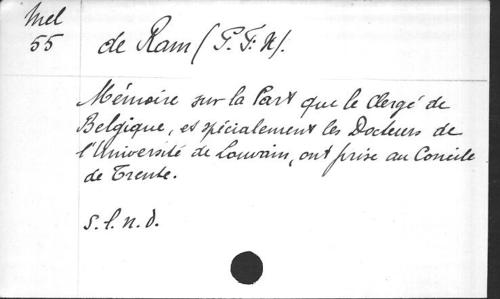 Mel
55
de Ram (P. F. X).
Mémoire sur la Part que le Clergé de
Belgique, et spécialement les Docteurs de
l'Université de Louvain, ont prise au Concile
de Trente.
s. l. n. d.